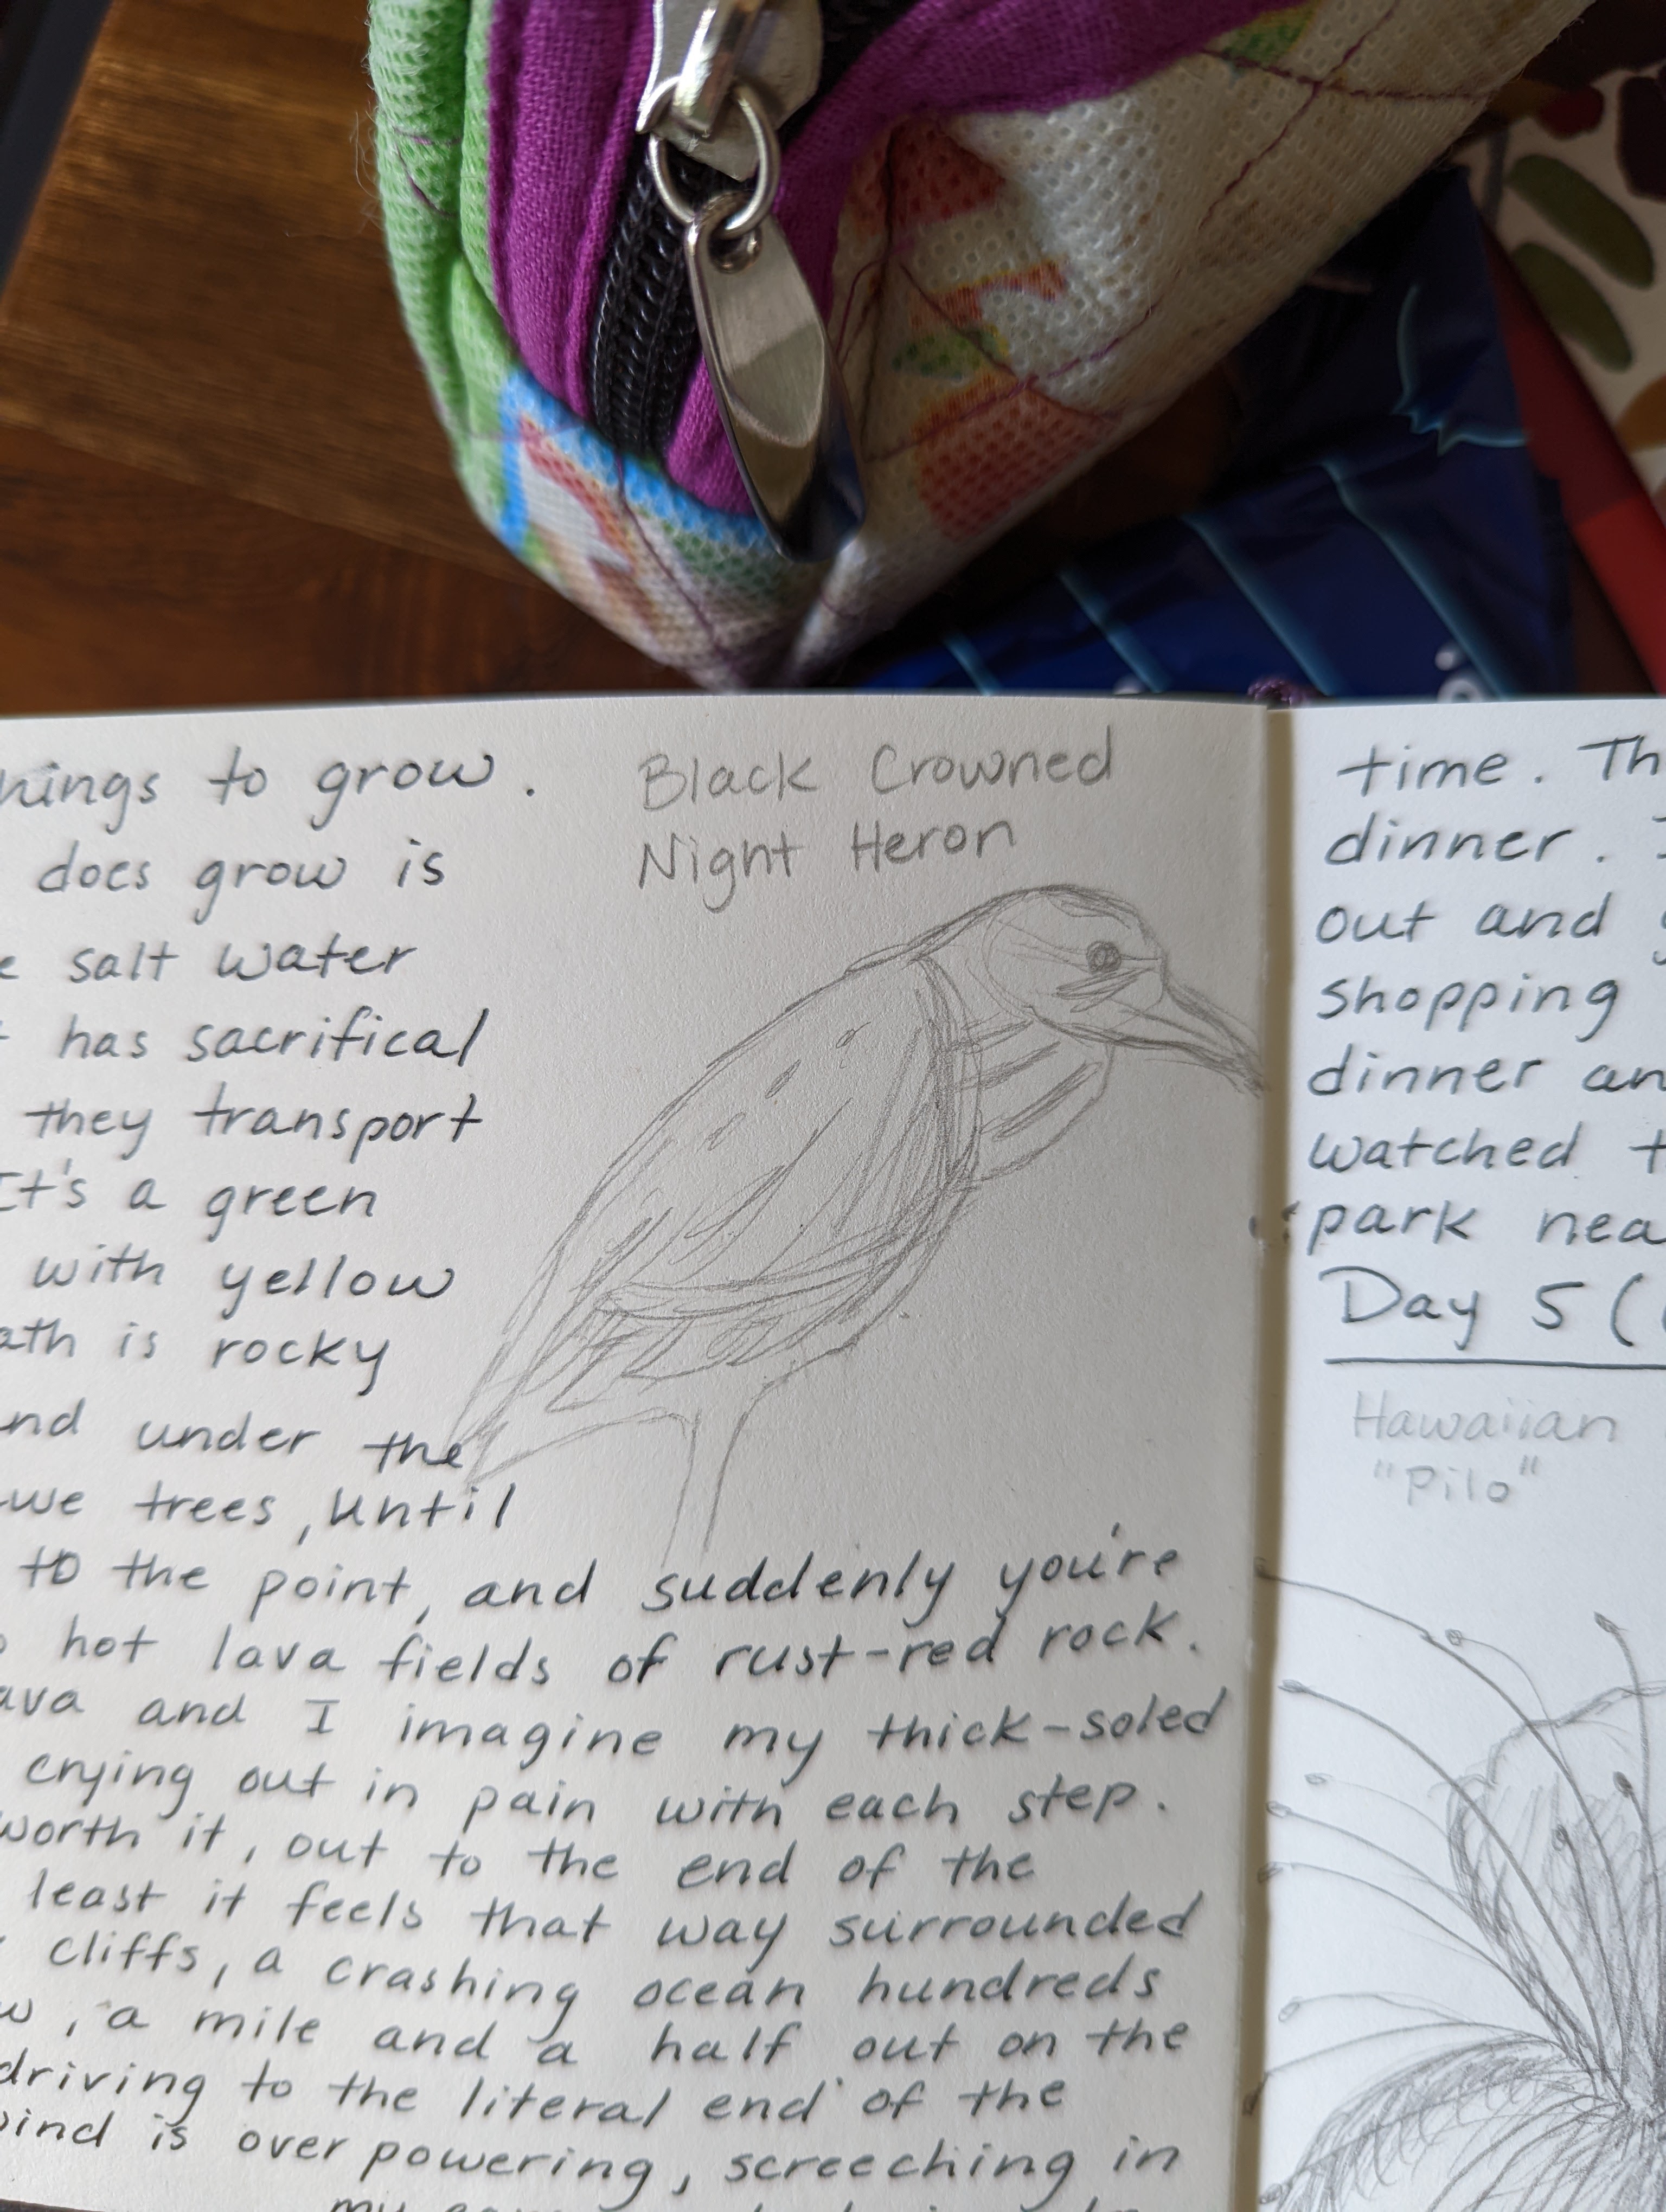 to grow.
does grow is
salt water
has sacrifical
they transport
It's a green
with yellow
is rocky
under the
trees, until
to the point, and suddenly you're
hot lava fields of rust-red rock.
and I imagine my thick-soled
crying out in pain with each step.
worth it, out to the end of the
least it feels that way surrounded
cliffs, a crashing ocean hundreds
, a mile and a half out on the
driving to the literal end of the
is overpowering, screeching in
my
Black Crowned
Night Heron
time.
dinner.
out and
shopping
dinner
watched
park
Day 5 (
Hawaiian
"Pilo"